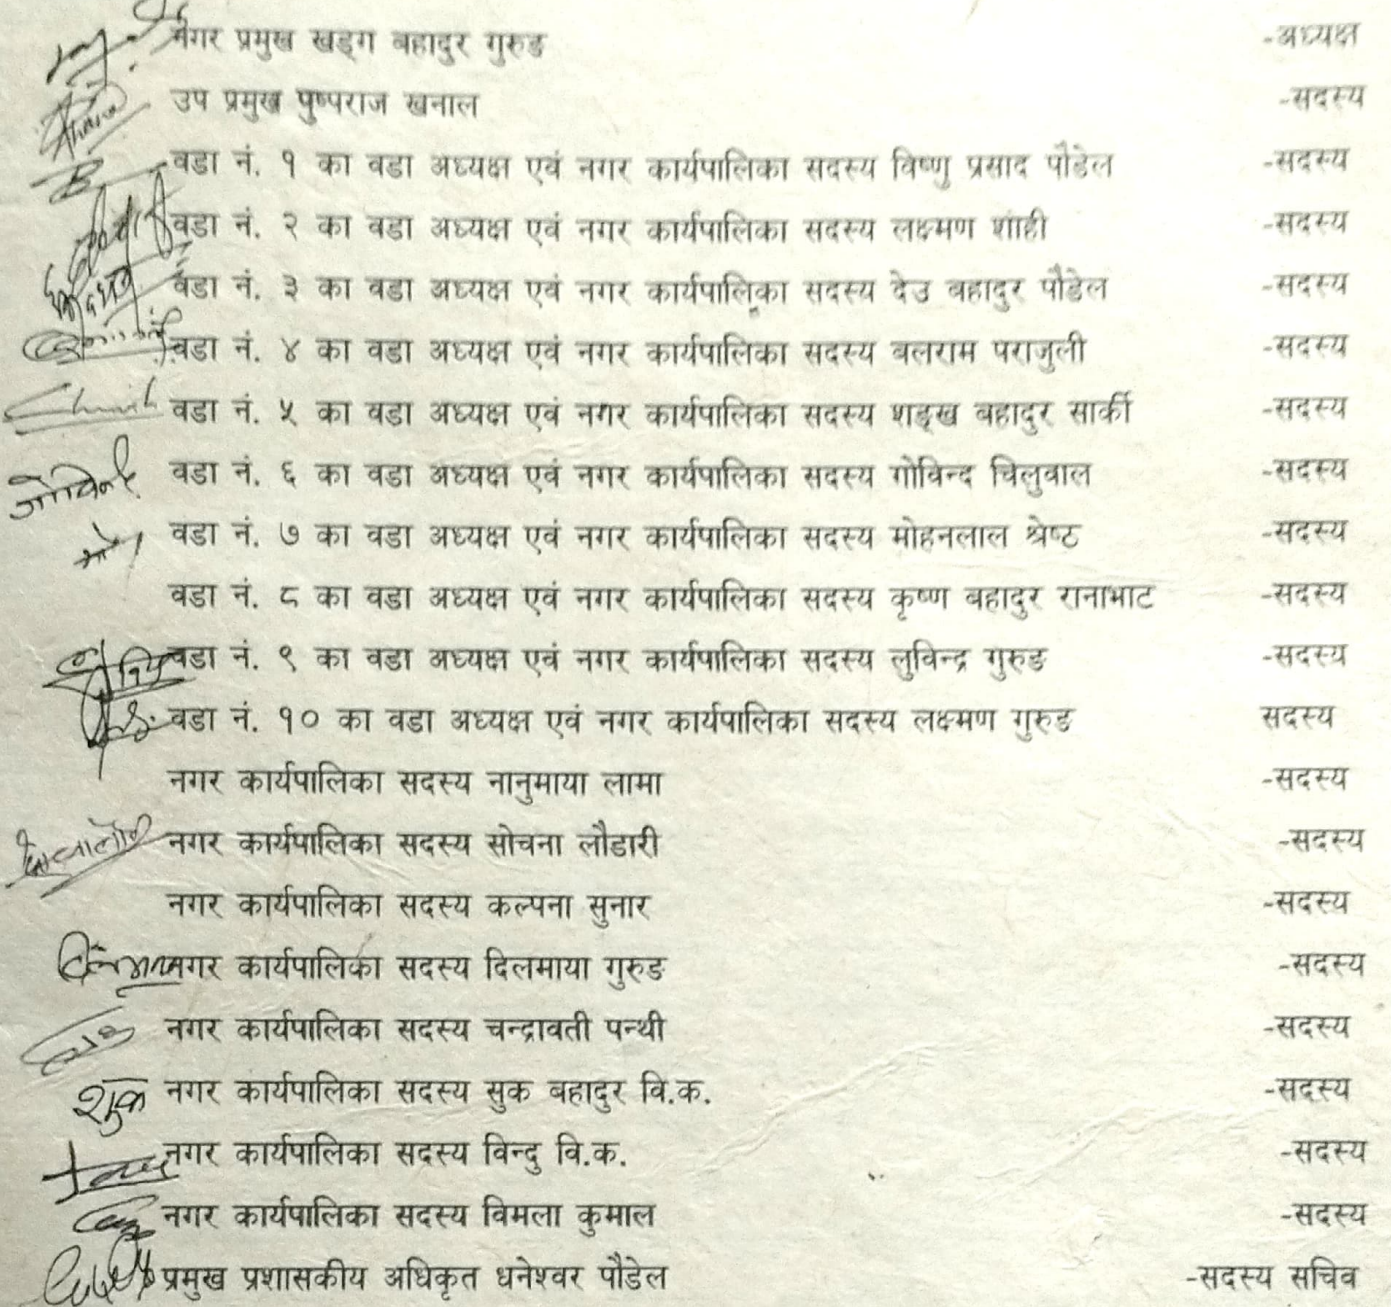 नगर प्रमुख खड्ग बहादुर गुरुङ -अध्यक्ष
उप प्रमुख पुष्पराज खनाल -सदस्य
वडा नं. १ का वडा अध्यक्ष एवं नगर कार्यपालिका सदस्य विष्णु प्रसाद पौडेल -सदस्य
वडा नं. २ का वडा अध्यक्ष एवं नगर कार्यपालिका सदस्य लक्ष्मण शाही -सदस्य
वडा नं. ३ का वडा अध्यक्ष एवं नगर कार्यपालिका सदस्य देउ बहादुर पौडेल -सदस्य
वडा नं. ४ का वडा अध्यक्ष एवं नगर कार्यपालिका सदस्य बलराम पराजुली -सदस्य
वडा नं. ५ का वडा अध्यक्ष एवं नगर कार्यपालिका सदस्य शङ्ख बहादुर सार्की -सदस्य
गोविन्द वडा नं. ६ का वडा अध्यक्ष एवं नगर कार्यपालिका सदस्य गोविन्द चिलुवाल -सदस्य
वडा नं. ७ का वडा अध्यक्ष एवं नगर कार्यपालिका सदस्य मोहनलाल श्रेष्ठ -सदस्य
वडा नं. ८ का वडा अध्यक्ष एवं नगर कार्यपालिका सदस्य कृष्ण बहादुर रानाभाट -सदस्य
वडा नं. ९ का वडा अध्यक्ष एवं नगर कार्यपालिका सदस्य लुविन्द्र गुरुङ -सदस्य
वडा नं. १० का वडा अध्यक्ष एवं नगर कार्यपालिका सदस्य लक्ष्मण गुरुङ सदस्य
नगर कार्यपालिका सदस्य नानुमाया लामा -सदस्य
नगर कार्यपालिका सदस्य सोचना लौडारी -सदस्य
नगर कार्यपालिका सदस्य कल्पना सुनार -सदस्य
नगर कार्यपालिका सदस्य दिलमाया गुरुङ -सदस्य
नगर कार्यपालिका सदस्य चन्द्रावती पन्थी -सदस्य
शुक नगर कार्यपालिका सदस्य सुक बहादुर वि.क. -सदस्य
नगर कार्यपालिका सदस्य विन्दु वि.क. -सदस्य
नगर कार्यपालिका सदस्य विमला कुमाल -सदस्य
प्रमुख प्रशासकीय अधिकृत धनेश्वर पौडेल -सदस्य सचिव